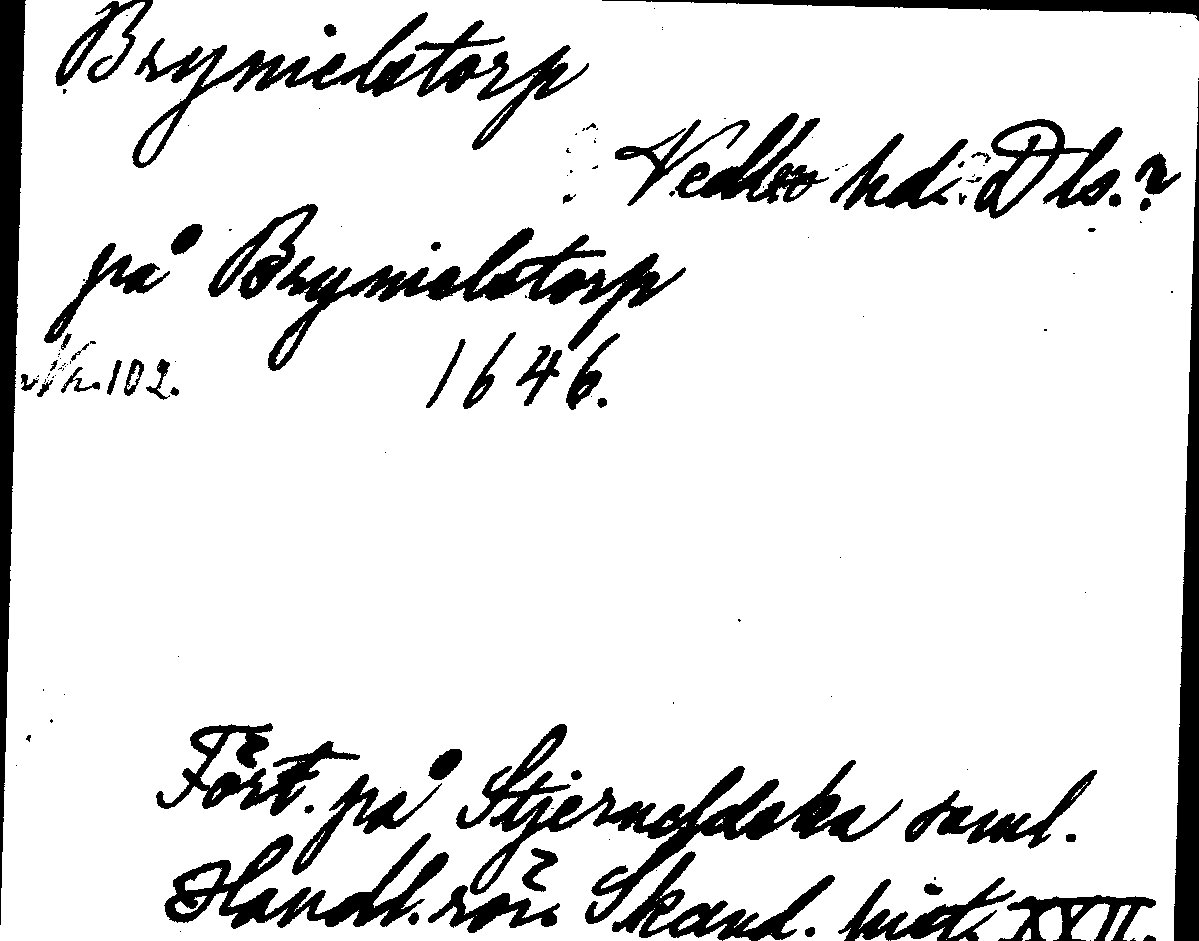 Brynielstorp
Vedbo hd. Dls.?
på Brynielstorp
Nr. 102. 1646.
Fört. på Stjerneldska saml.
Handl. rör. Skand. hist. XXII.